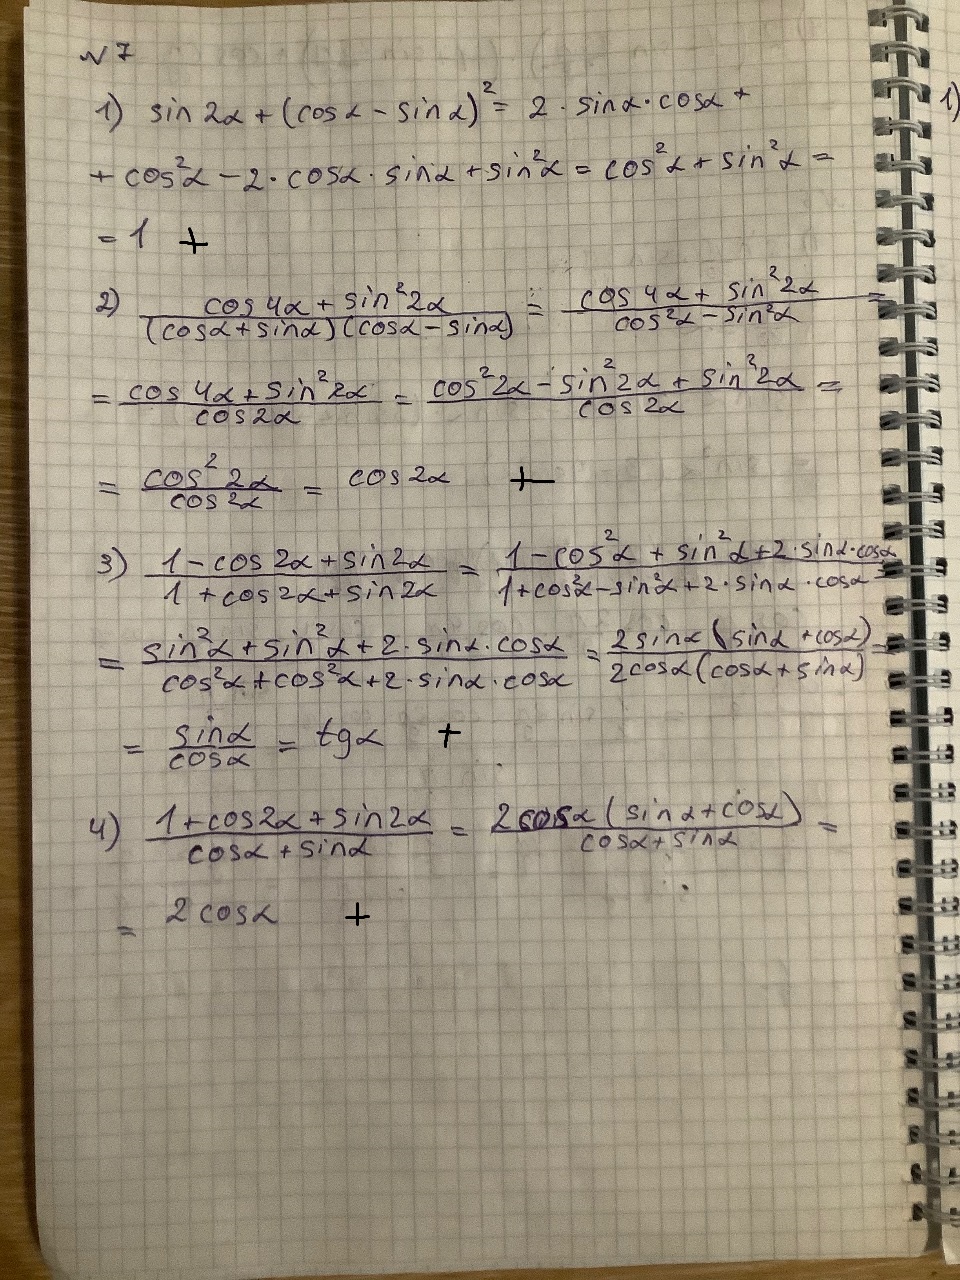 №7
1) sin 2α + (cosα - sinα)² = 2 · sinα · cosα +
+ cos²α - 2 · cosα · sinα + sin²α = cos²α + sin²α =
= 1 +
2) (cos 4α + sin² 2α) / ((cosα + sinα)(cosα - sinα)) = (cos 4α + sin² 2α) / (cos²α - sin²α) =
= (cos 4α + sin² 2α) / (cos 2α) = (cos² 2α - sin² 2α + sin² 2α) / (cos 2α) =
= (cos² 2α) / (cos 2α) = cos 2α +
3) (1 - cos 2α + sin 2α) / (1 + cos 2α + sin 2α) = (1 - cos²α + sin²α + 2 · sinα · cosα) / (1 + cos²α - sin²α + 2 · sinα · cosα) =
= (sin²α + sin²α + 2 · sinα · cosα) / (cos²α + cos²α + 2 · sinα · cosα) = (2 sinα (sinα + cosα)) / (2 cosα (cosα + sinα)) =
= (sinα) / (cosα) = tgα +
4) (1 + cos 2α + sin 2α) / (cosα + sinα) = (2 cosα (sinα + cosα)) / (cosα + sinα) =
= 2 cosα +
1)